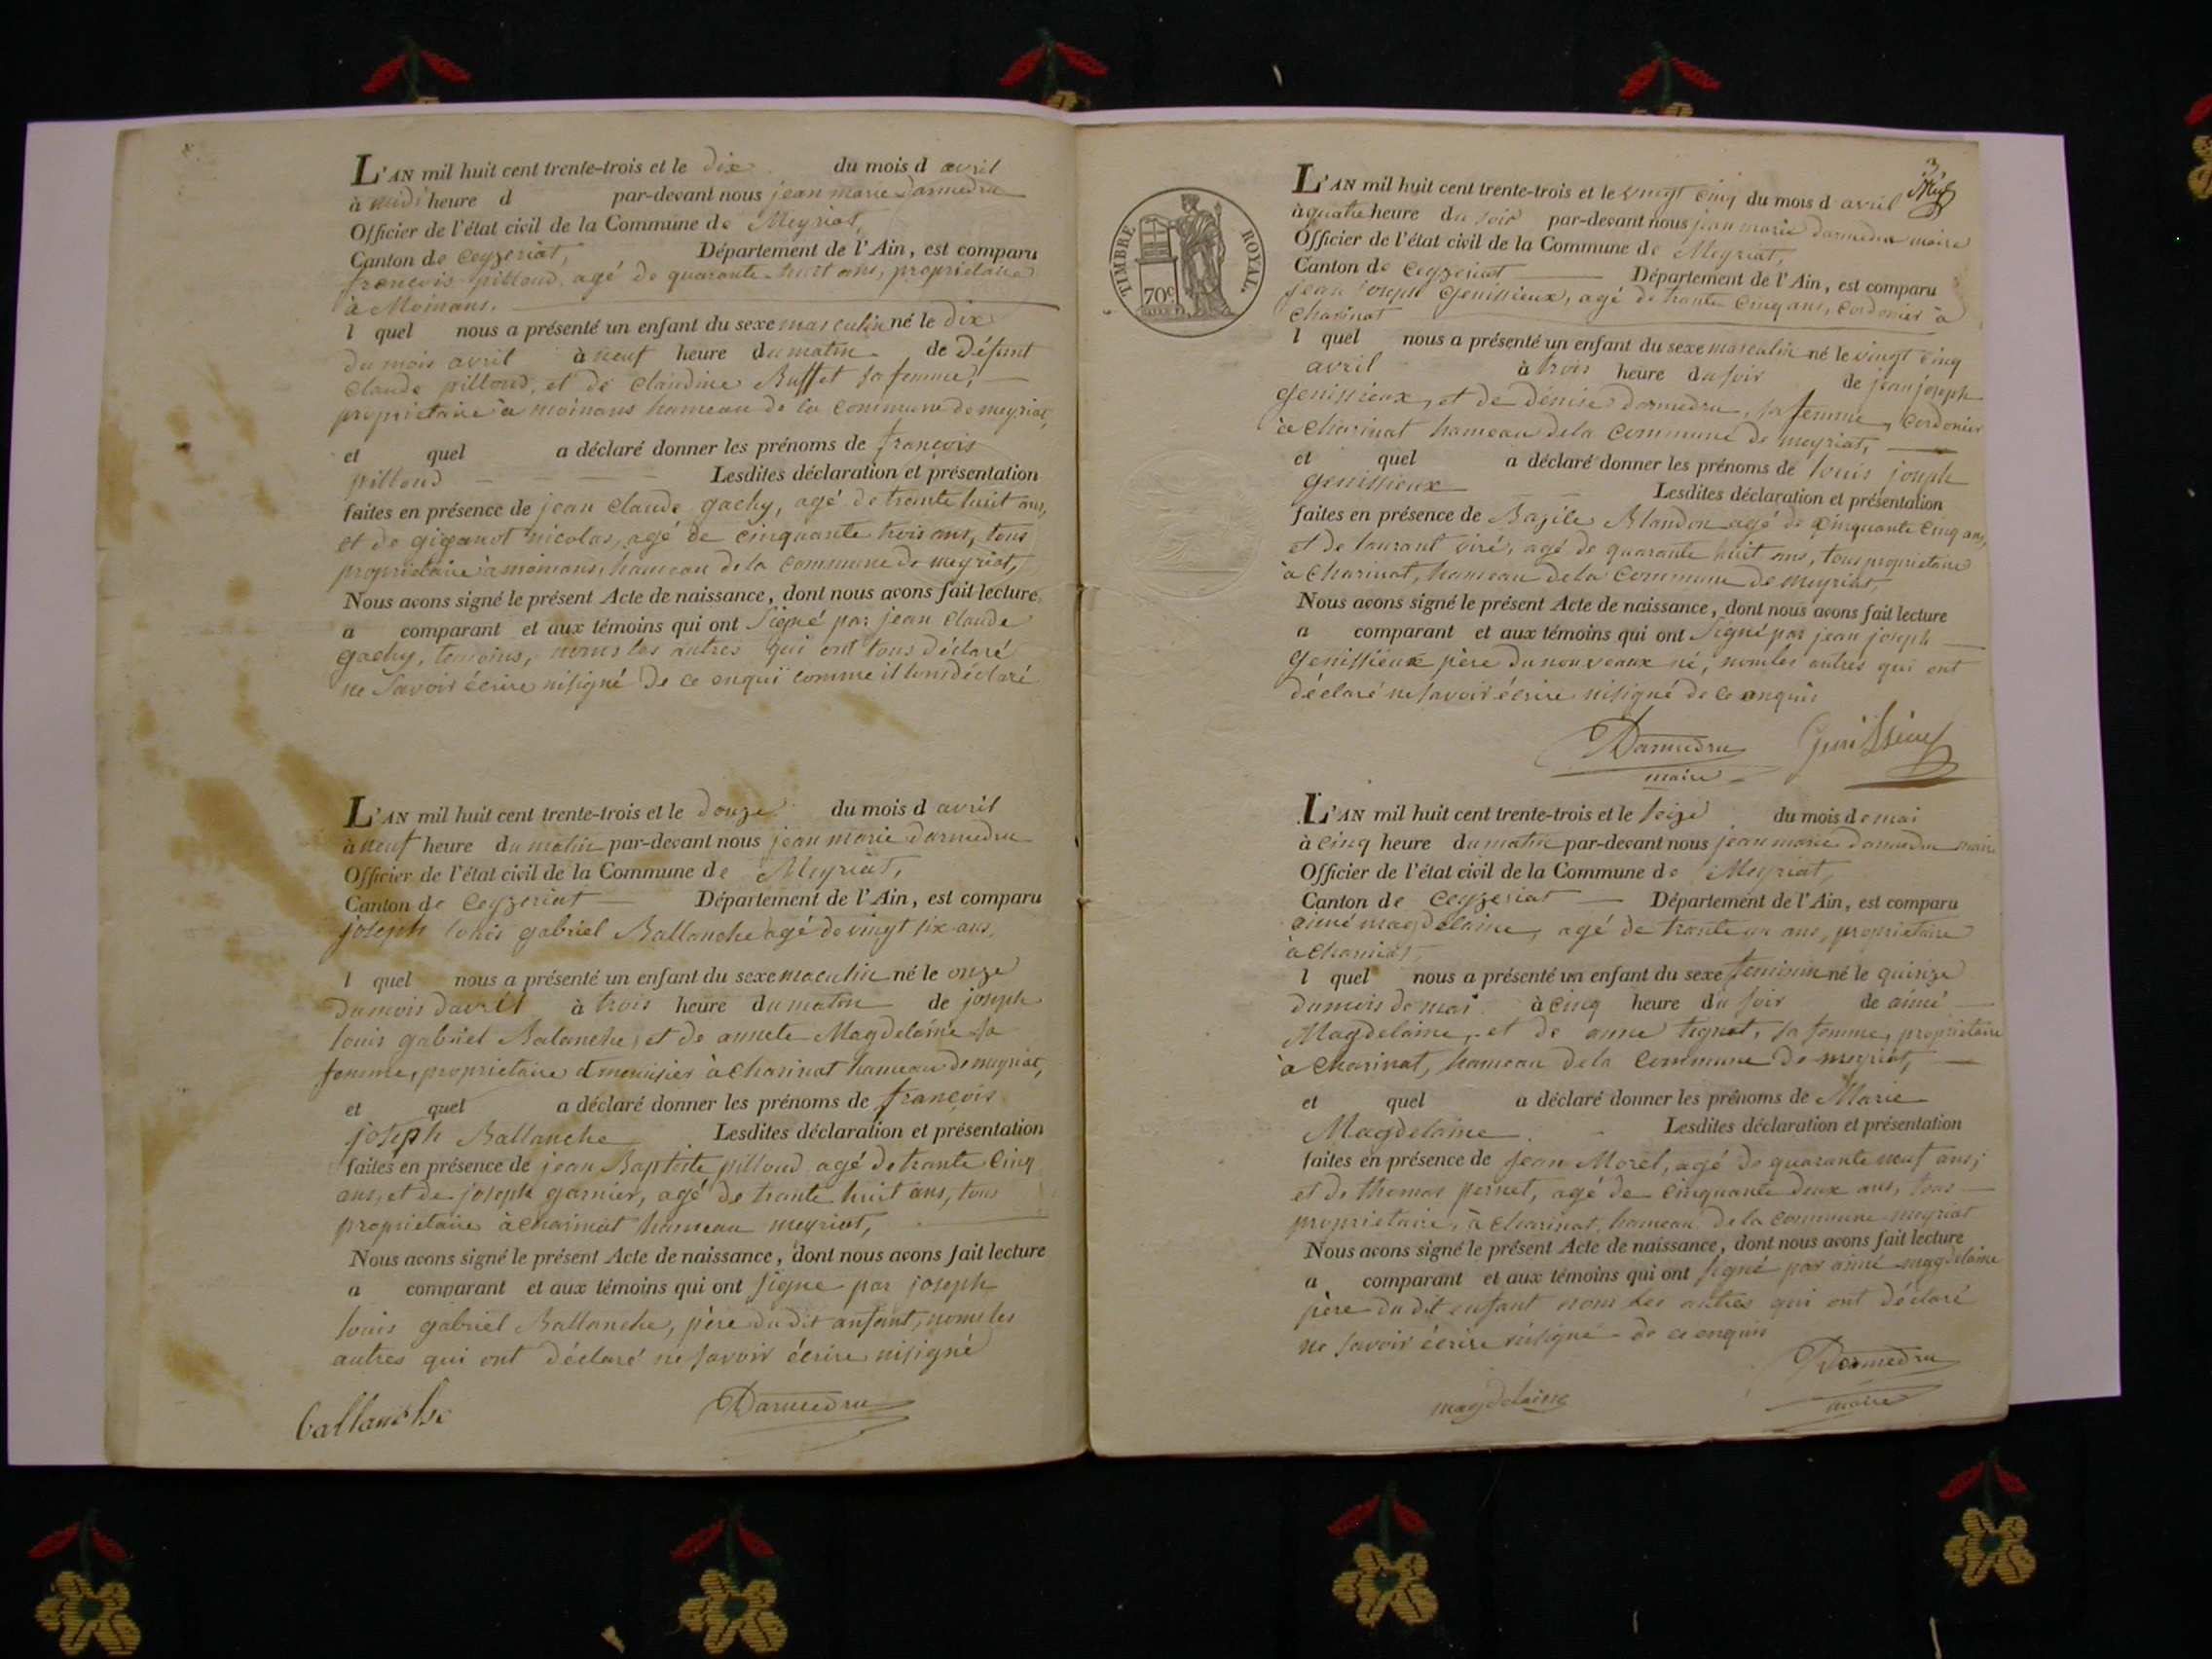 L'AN mil huit cent trente-trois et le dix du mois d avril
à midi heure d par-devant nous jean marie darmedru
Officier de l'état civil de la Commune de Meyriat,
Canton de Ceyzeriat, Département de l'Ain, est comparu
françois pilloud, agé de quarante-huit ans, propriétaire
à Moinans.
l quel nous a présenté un enfant du sexe masculin né le dix
du mois avril à neuf heure du matin de défunt
Claude pilloud, et de Claudine Buffet sa femme,
proprietaire à moinans hameau de la commune de meyriat,
et quel a déclaré donner les prénoms de françois
pilloud Lesdites déclaration et présentation
faites en présence de jean Claude gachy, agé de trante huit ans,
et de giganot nicolas, agé de cinquante trois ans, tous
proprietaire à moinans, hameau de la Commune de meyriat,
Nous avons signé le présent Acte de naissance, dont nous avons fait lecture
a comparant et aux témoins qui ont Signé par jean Claude
gachy, temoins, nons les autres qui ont tous déclaré
ne Savoir écrire nisigné de ce enqui comme il lons déclaré
L'AN mil huit cent trente-trois et le douze du mois d avril
à neuf heure du matin par-devant nous jean marie darmedru
Officier de l'état civil de la Commune de Meyriat,
Canton de Ceyzeriat Département de l'Ain, est comparu
joseph louis gabriel Ballanche agé de vingt six ans,
l quel nous a présenté un enfant du sexe maculin né le onze
du mois davril à trois heure du maton de joseph
louis gabriel Balanche, et de annete Magdelaine sa
femme, proprietaire et menuisier à Charinat hameau de meyriat,
et quel a déclaré donner les prénoms de françois
joseph Ballanche Lesdites déclaration et présentation
faites en présence de jean Baptiste pilloud agé de trante Cinq
ans, et de joseph garnier, agé de trante huit ans, tous
proprietaire à charinat hameau meyriat,
Nous avons signé le présent Acte de naissance, dont nous avons fait lecture
a comparant et aux témoins qui ont signe par joseph
louis gabriel Ballanche, père du dit anfant, nons les
autres qui ont déclaré ne savoir écrire nisigné
ballanche Darmedru
3
TIMBRE ROYAL.
70c
L'AN mil huit cent trente-trois et le vingt cinq du mois d avril
à quatre heure du soir par-devant nous jean marie darmedru maire
Officier de l'état civil de la Commune de Meyriat,
Canton de Ceyzeriat Département de l'Ain, est comparu
jean joseph Genissieux, agé de trante Cinq ans, Cordonier à
Charinat
l quel nous a présenté un enfant du sexe masculin né le vingt cinq
avril à trois heure du soir de jean joseph
genissieux, et de dénise darmedru, sa femme, Cordonier
à Charinat hameau dela Commune de meyriat,
et quel a déclaré donner les prénoms de louis joseph
genissieux Lesdites déclaration et présentation
faites en présence de Bazile Blandon agé de Cinquante Cinq ans,
et de laurant viré, agé de quarante huit ans, tous proprietaire
à Charinat, hameau dela Commune de meyriat,
Nous avons signé le présent Acte de naissance, dont nous avons fait lecture
a comparant et aux témoins qui ont Signé par jean joseph
genissieux père du nouveaux né, nom les autres qui ont
déclaré ne savoir écrire nisigné de ce enquis
Darmedru Genissieux
maire
L'AN mil huit cent trente-trois et le seize du mois de mai
à Cinq heure du matin par-devant nous jean marie darmedru maire
Officier de l'état civil de la Commune de Meyriat,
Canton de Ceyzeriat Département de l'Ain, est comparu
aimé magdelaine, agé de trante un ans, proprietaire
à Charinat,
l quel nous a présenté un enfant du sexe feminin né le quinze
du mois de mai à Cinq heure du soir de aimé
Magdelaine, et de anne tignet, sa femme, proprietaire
à Charinat, hameau dela Commune de meyriat,
et quel a déclaré donner les prénoms de Marie
Magdelaine. Lesdites déclaration et présentation
faites en présence de jean Morel, agé de quarante neuf ans,
et de thomas pernet, agé de cinquante deux ans, tous
proprietaire, à Charinat, hameau dela commune meyriat
Nous avons signé le présent Acte de naissance, dont nous avons fait lecture
a comparant et aux témoins qui ont signé par aimé magdelaine
père du dit enfant nom les autres qui ont déclaré
ne savoir écrire nisigné de ce enquis
magdelaine Darmedru
maire